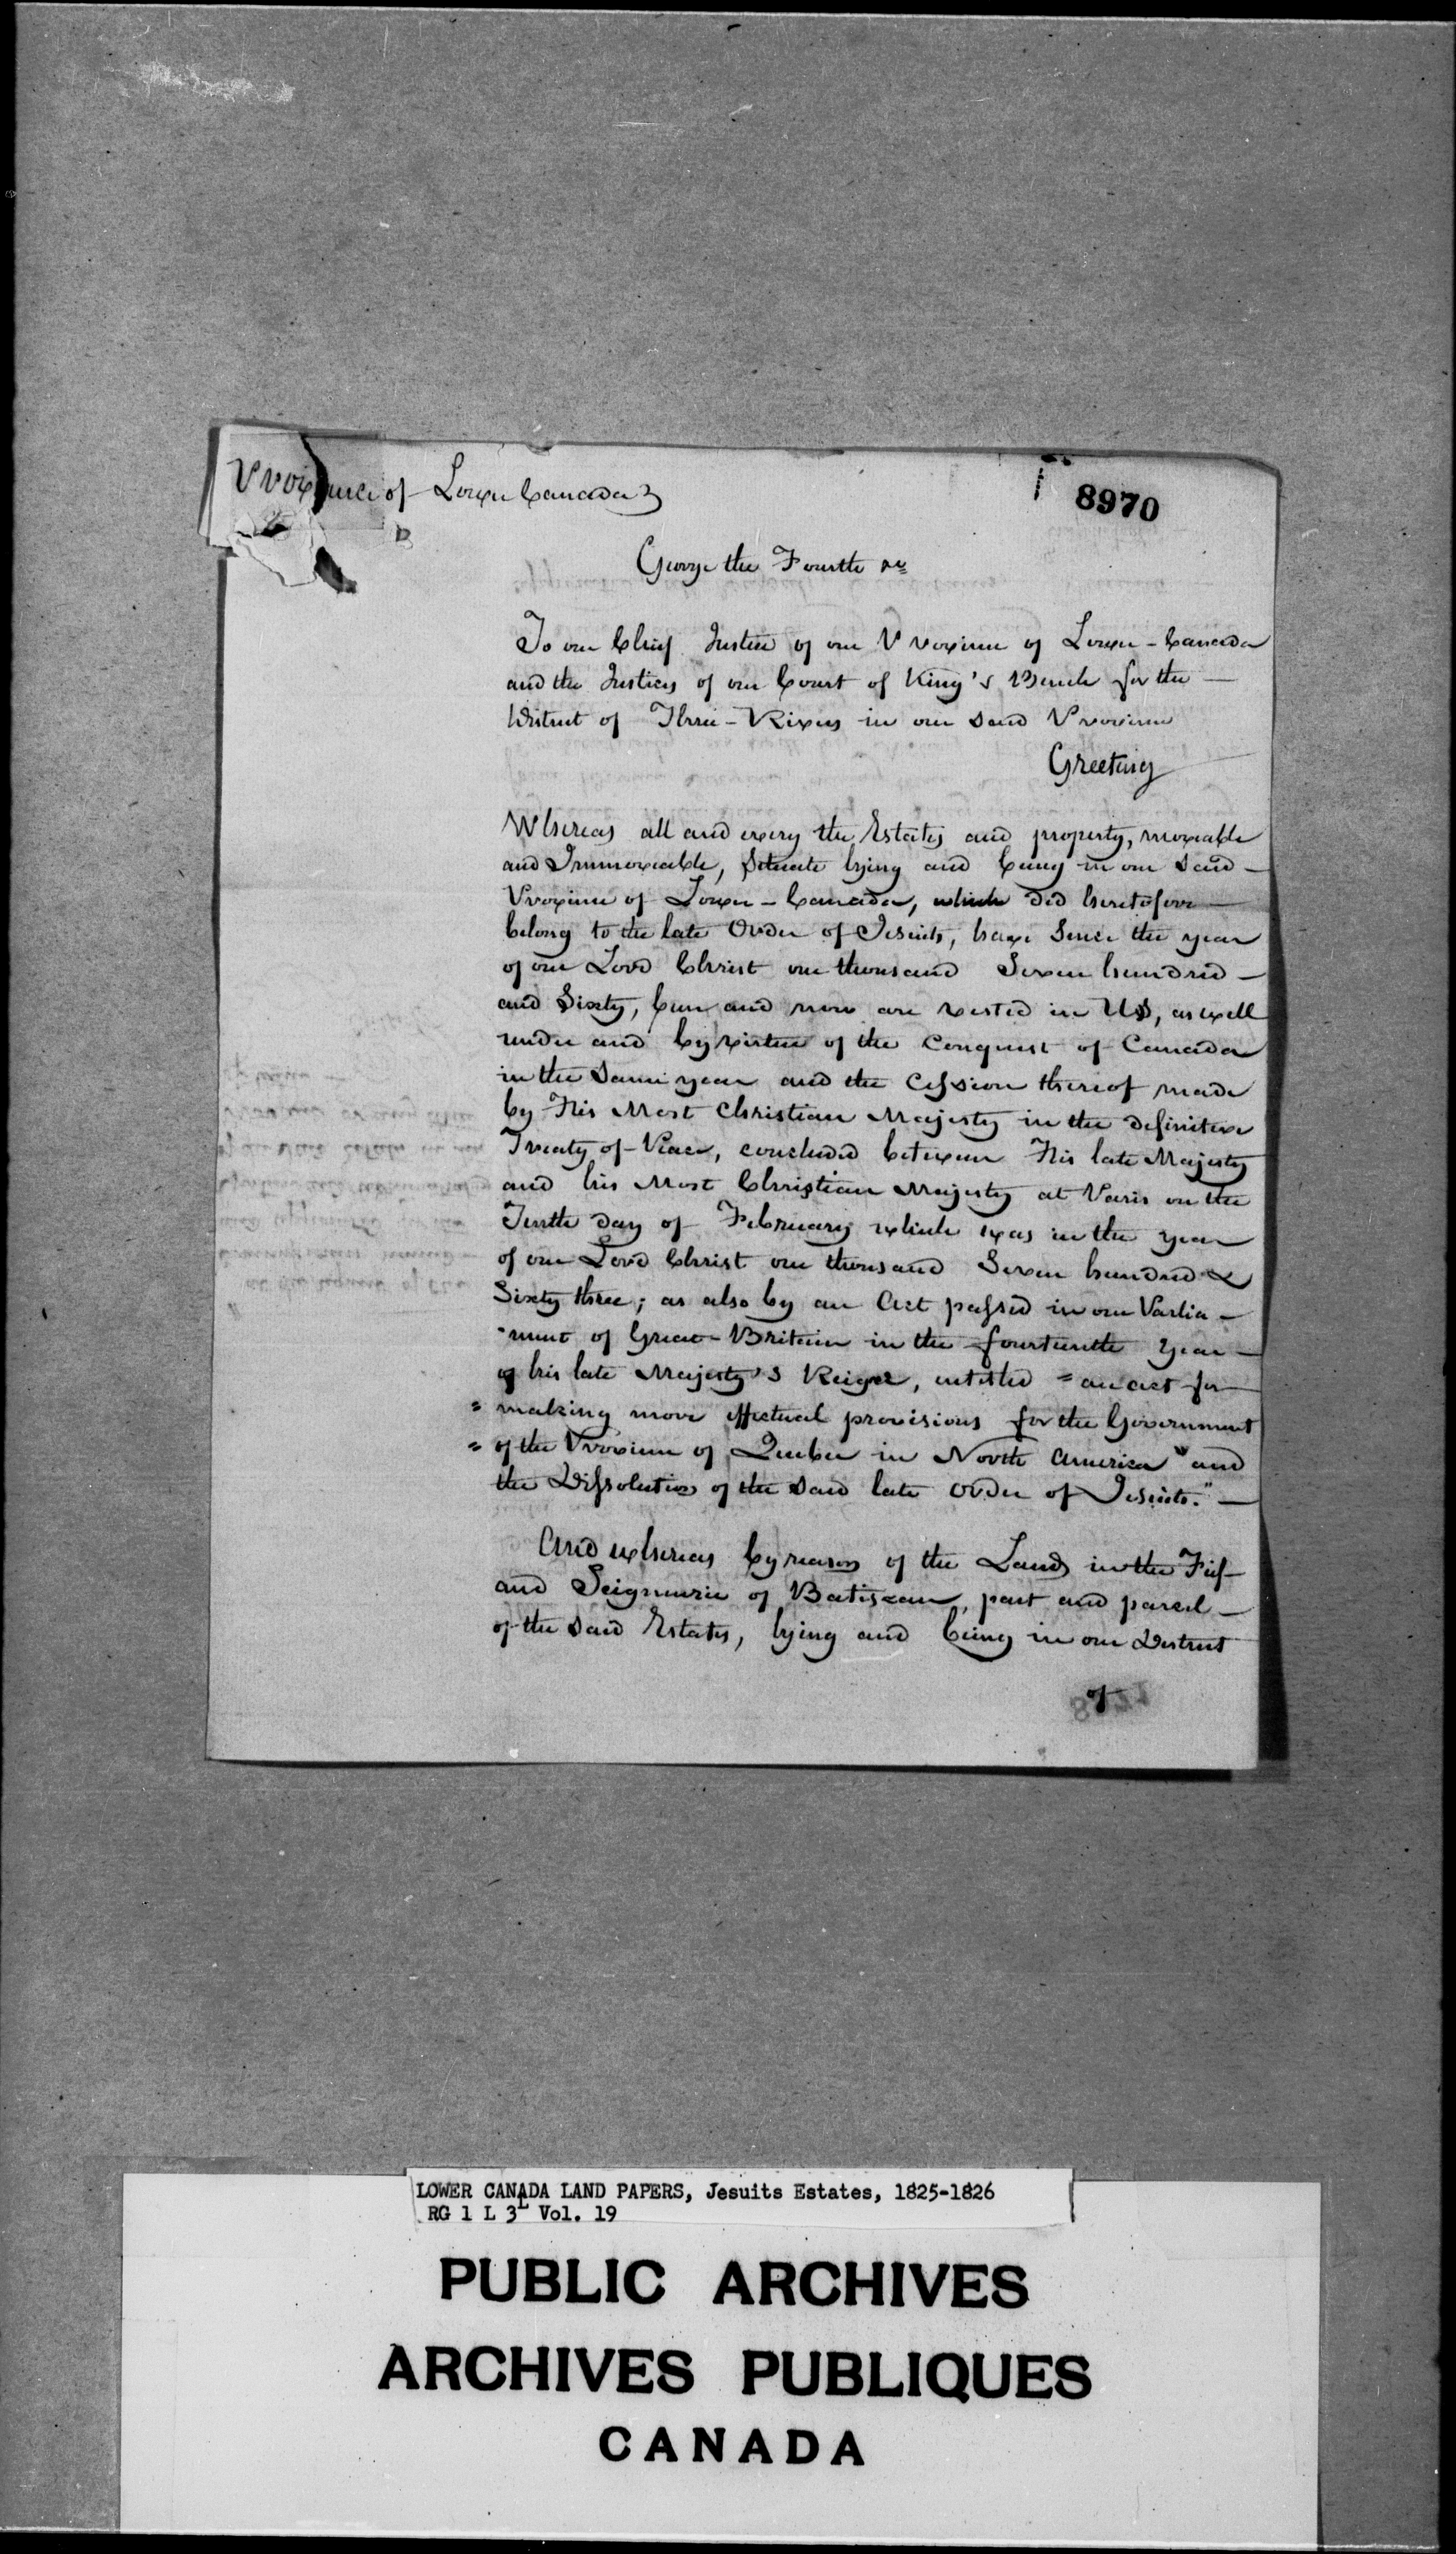 Province of Lower Canada
8970
George the Fourth &c
To our Chief Justice of our Province of Lower-Canada
and the Justices of our Court of King's Bench for the —
District of Three-Rivers in our said Province
Greeting
Whereas all and every the Estates and property, moveable
and Immoveable, Situate lying and being in our Said —
Province of Lower-Canada, which did heretofore —
belong to the late Order of Jesuits, have Since the year
of our Lord Christ one thousand Seven hundred —
and Sixty, been and now are vested in Us, as well
under and by virtue of the Conquest of Canada
in the Same year and the Cession thereof made
by His Most Christian Majesty in the definitive
Treaty of Peace, concluded between His late Majesty
and his Most Christian Majesty at Paris on the
Tenth day of February which was in the year
of our Lord Christ one thousand Seven hundred &
Sixty three; as also by an Act passed in our Parlia-
-ment of Great-Britain in the fourteenth year —
of his late Majesty's Reign, intitled "an act for —
" making more effectual provisions for the Government
" of the Province of Quebec in North America" and
the Dissolution of the said late Order of Jesuits." —
And whereas by reason of the Lands in the Fief
and Seigneurie of Batiscan, part and parcel —
of the said Estates, lying and being in our District
of
LOWER CANADA LAND PAPERS, Jesuits Estates, 1825-1826
RG 1 L 3L Vol. 19
PUBLIC ARCHIVES
ARCHIVES PUBLIQUES
CANADA